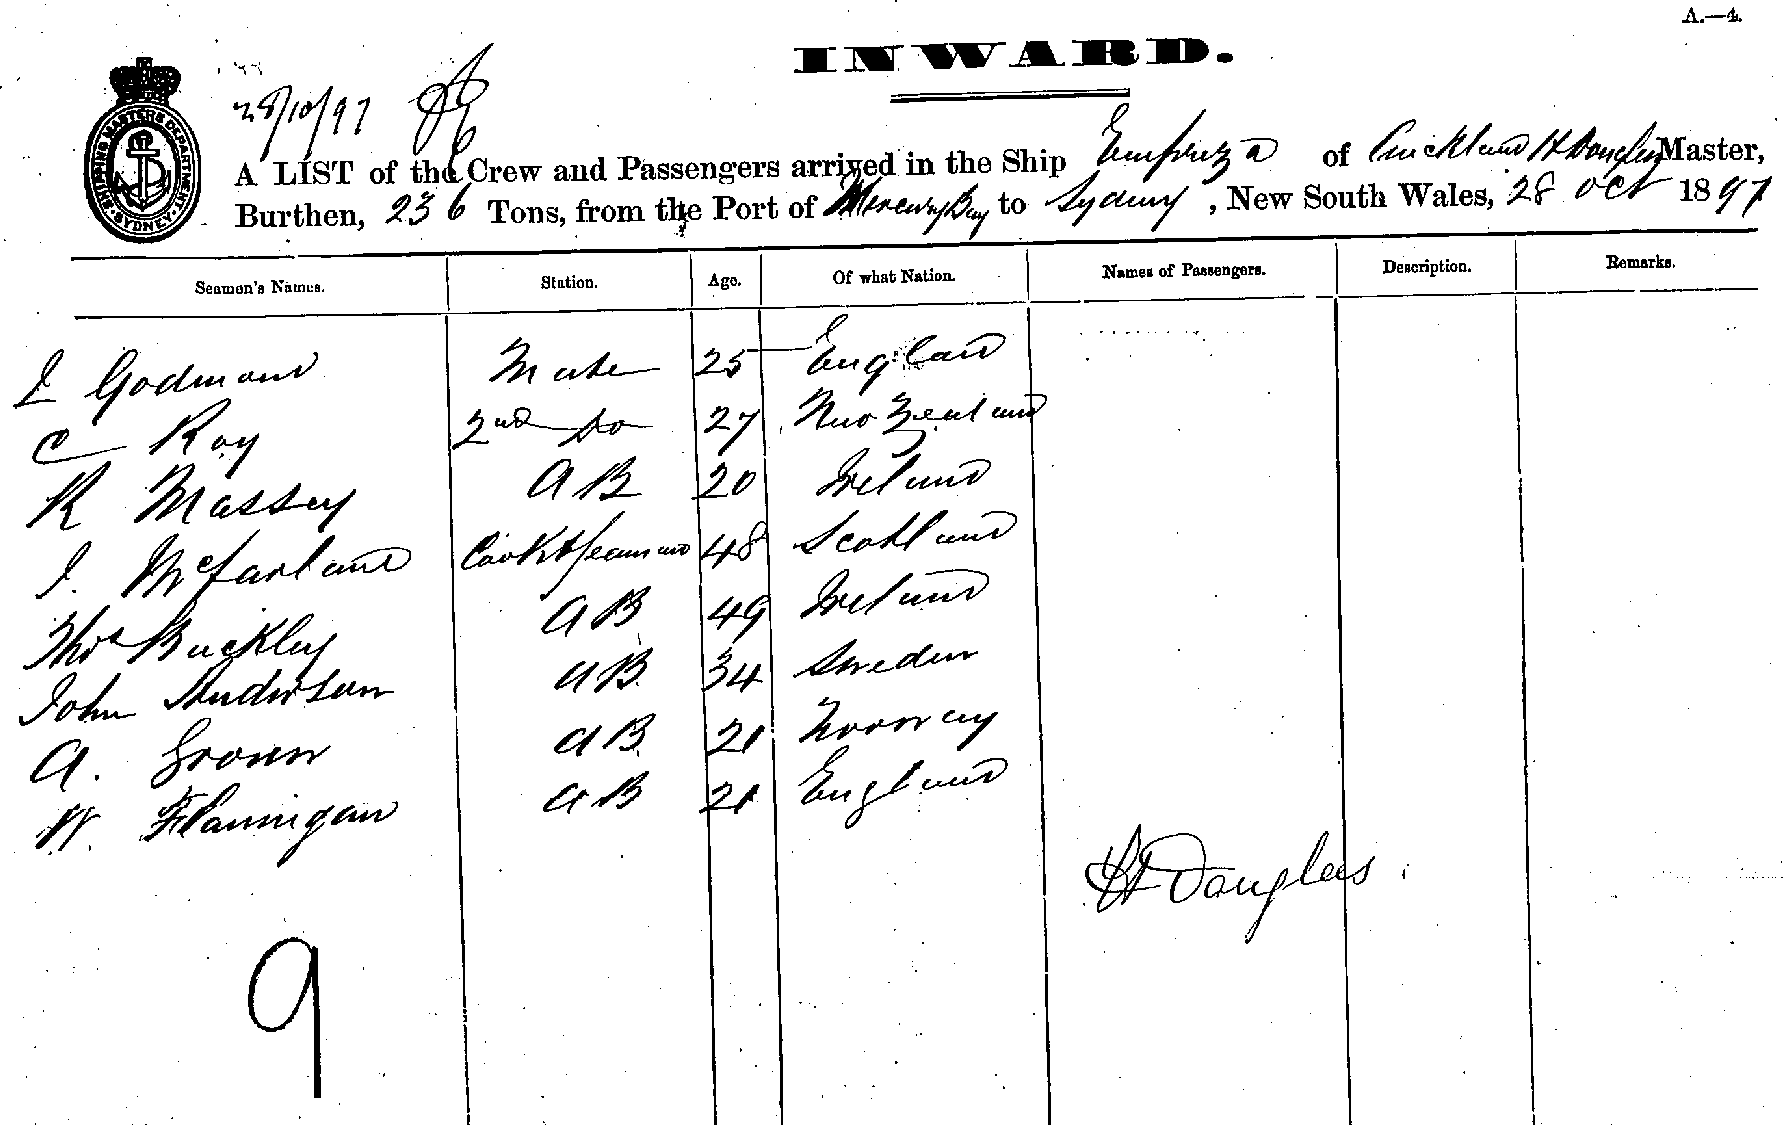 A.—4.
INWARD.
28/10/97
SHIPPING MASTERS DEPARTMENT SYDNEY
A LIST of the Crew and Passengers arrived in the Ship Empreza of Auckland H Douglas Master,
Burthen, 236 Tons, from the Port of Mercury Bay to Sydney, New South Wales, 28 Oct 1897
Seamen's Names. Station. Age. Of what Nation. Names of Passengers. Description. Remarks.
Godmand Mate 25 England
C Roy 2nd Do 27 New Zealand
R Massey AB 20 Ireland
J. McFarland Cook & Seaman 48 Scotland
Thos Buckley AB 49 Ireland
John Anderson AB 34 Sweden
A. AB 21 Norway
W. Flannigan AB 21 England
H Douglas
9